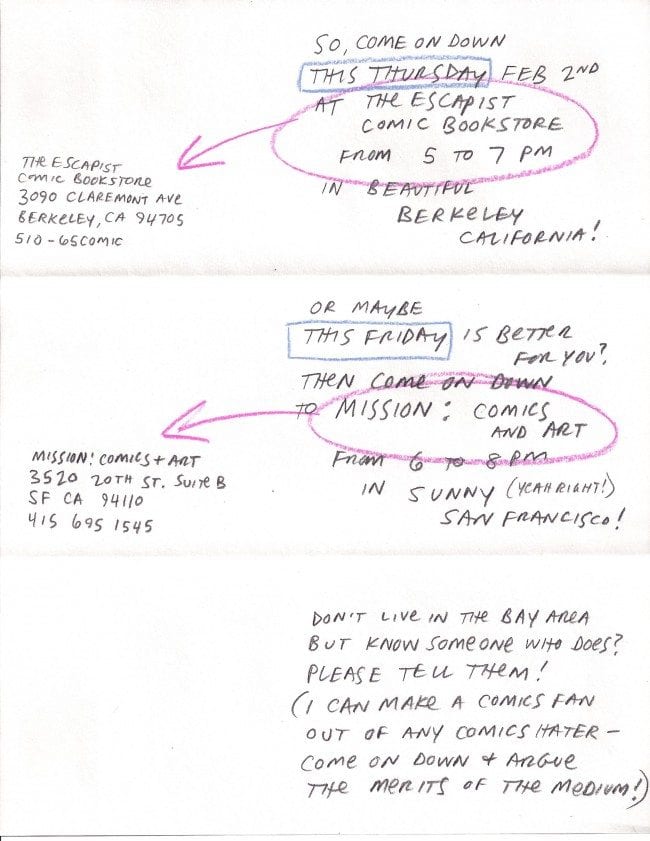 SO, COME ON DOWN
THIS THURSDAY FEB 2ND
AT THE ESCAPIST
COMIC BOOKSTORE
FROM 5 TO 7 PM
IN BEAUTIFUL
BERKELEY
CALIFORNIA!
THE ESCAPIST
COMIC BOOKSTORE
3090 CLAREMONT AVE
BERKELEY, CA 94705
510-65COMIC
OR MAYBE
THIS FRIDAY IS BETTER
FOR YOU?
THEN COME ON DOWN
TO MISSION: COMICS
AND ART
FROM 6 TO 8 PM
IN SUNNY (YEAH RIGHT!)
SAN FRANCISCO!
MISSION: COMICS + ART
3520 20TH ST. SUITE B
SF CA 94110
415 695 1545
DON'T LIVE IN THE BAY AREA
BUT KNOW SOMEONE WHO DOES?
PLEASE TELL THEM!
(I CAN MAKE A COMICS FAN
OUT OF ANY COMICS HATER –
COME ON DOWN + ARGUE
THE MERITS OF THE MEDIUM!)